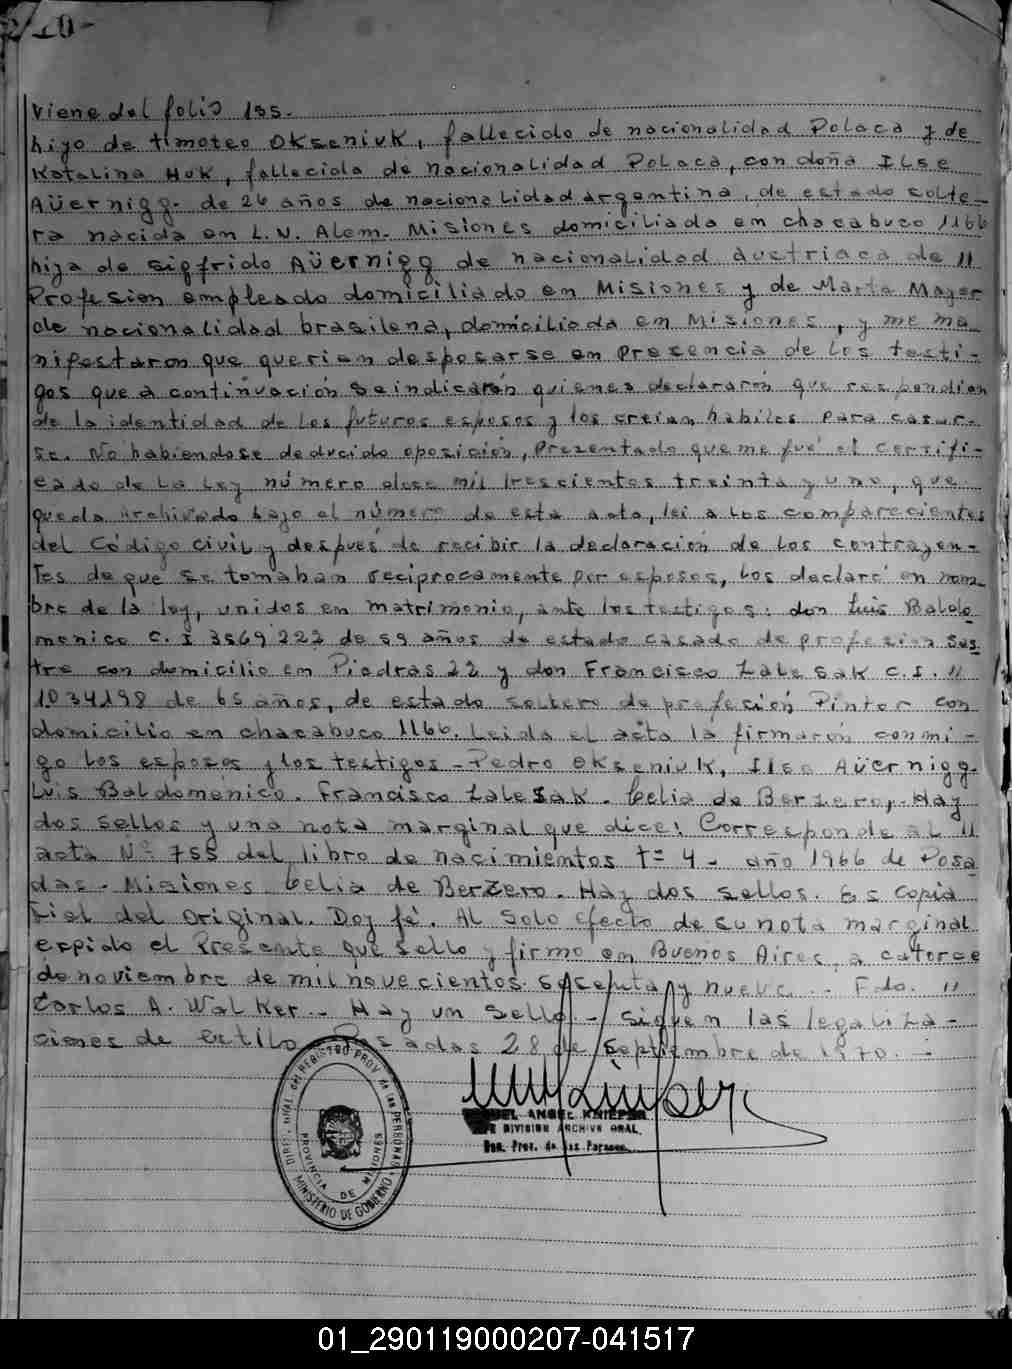 viene del folio 155.
hijo de timoteo OKSENIUK, fallecido de nacionalidad Polaca y de
Katalina HUK, fallecida de nacionalidad Polaca, con doña ILSe
AÜernigg. de 26 años de nacionalidad argentina, de estado solte-
ra nacida en L.N. Alem. Misiones domiciliada en chacabuco 1166
hija de sigfrido AÜernigg de nacionalidad austriaca de "
Profesion empleado domiciliado en Misiones y de Marta Mayer
de nacionalidad brasilena, domiciliada en Misiones, y me ma
nifestaron que querian desposarse en presencia de los testi-
gos que a continuación se indicarán quienes declararon que respondian
de la identidad de los futuros esposos y los creian habiles para casar-
se. No habiendose deducido oposición, Presentado que me fué el certifi-
cado de la Ley número doce mil trescientos treinta y uno, que
queda archivado bajo el número de esta acta, lei a los comparecientes
del Código civil y después de recibir la declaración de los contrayen-
tes de que se tomaban reciprocamente por esposos, los declaré en nom-
bre de la ley, unidos en matrimonio, ante los testigos: don Luis Baldo
menico C.I 3569223 de 59 años de estado casado de profesion Sas
tre con domicilio en Piedras 22 y don Francisco Zalesak C.I. "
1034198 de 65 años, de estado soltero de profesión Pintor con
domicilio en chacabuco 1166. Leida el acta la firmarón conmi-
go los esposos y los testigos - Pedro OKseniuk, Ilse AÜernigg.
Luis Baldomenico. Francisco Zalesak. Celia de Berzero,. Hay
dos sellos y una nota marginal que dice: Corresponde al "
acta Nº 755 del libro de nacimientos tº 4 - año 1966 de Posa
das - Misiones Celia de Berzero. Hay dos sellos. Es copia
fiel del original. Doy fé. Al solo efecto de su nota marginal
expido el Presente que sello y firmo en Buenos Aires, a catorce
de noviembre de mil novecientos sesenta y nueve.. Fdo. "
Carlos A. Walker.- Hay un sello.- siguen las legaliza-
ciones de estilo Posadas 28 de septiembre de 1970. -
DIREC. GRAL. DEL REGISTRO PROV. de las PERSONAS
PROVINCIA DE MISIONES
MINISTERIO DE GOBIERNO
ANGEL KNIEPER
DIVISION ARCHIVO GRAL.
01_290119000207-041517